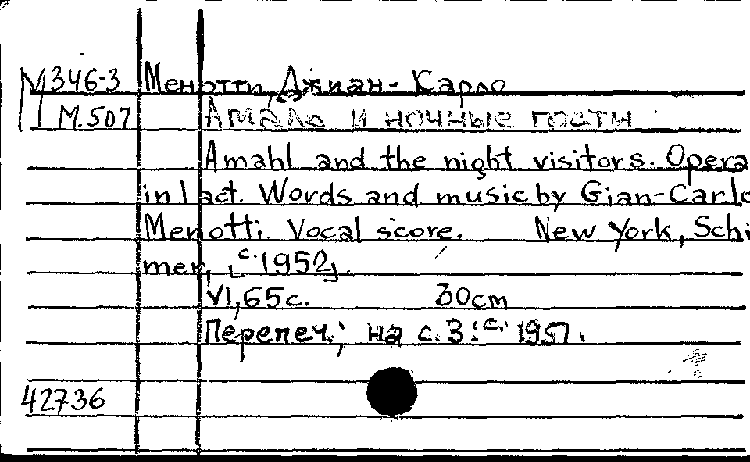 М346-3 Менотти, Джиан-Карло
М.507 Амаль и ночные гости
Amahl and the night visitors. Opera
in 1 act. Words and music by Gian-Carlo
Menotti. Vocal score. New York, Schi
mer, [с. 1952].
VI, 65 с. 30 cm
Перепеч.; на с. 3: с. 1951.
42736